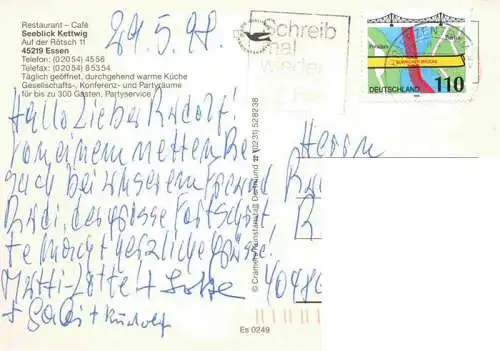 Restaurant – Café
Seeblick Kettwig
Auf der Rötsch 11
45219 Essen
Telefon: (02054) 4556
Telefax: (02054) 85354
Täglich geöffnet, durchgehend warme Küche
Gesellschafts-, Konferenz- und Partyräume
für bis zu 300 Gästen, Partyservice
29.5.98.
Schreib
mal
wieder
110
DEUTSCHLAND
Hallo Lieber Rudolf!
Von einem netten Be
such bei unserem Freund
Rudi, der grosse Fortschrit
te macht herzliche Grüsse!
Mutti-Lotte +
+ Gabi + Rudolf
Herrn
© Cramers Kunstanstalt Dortmund (0231) 528238
Es 0249